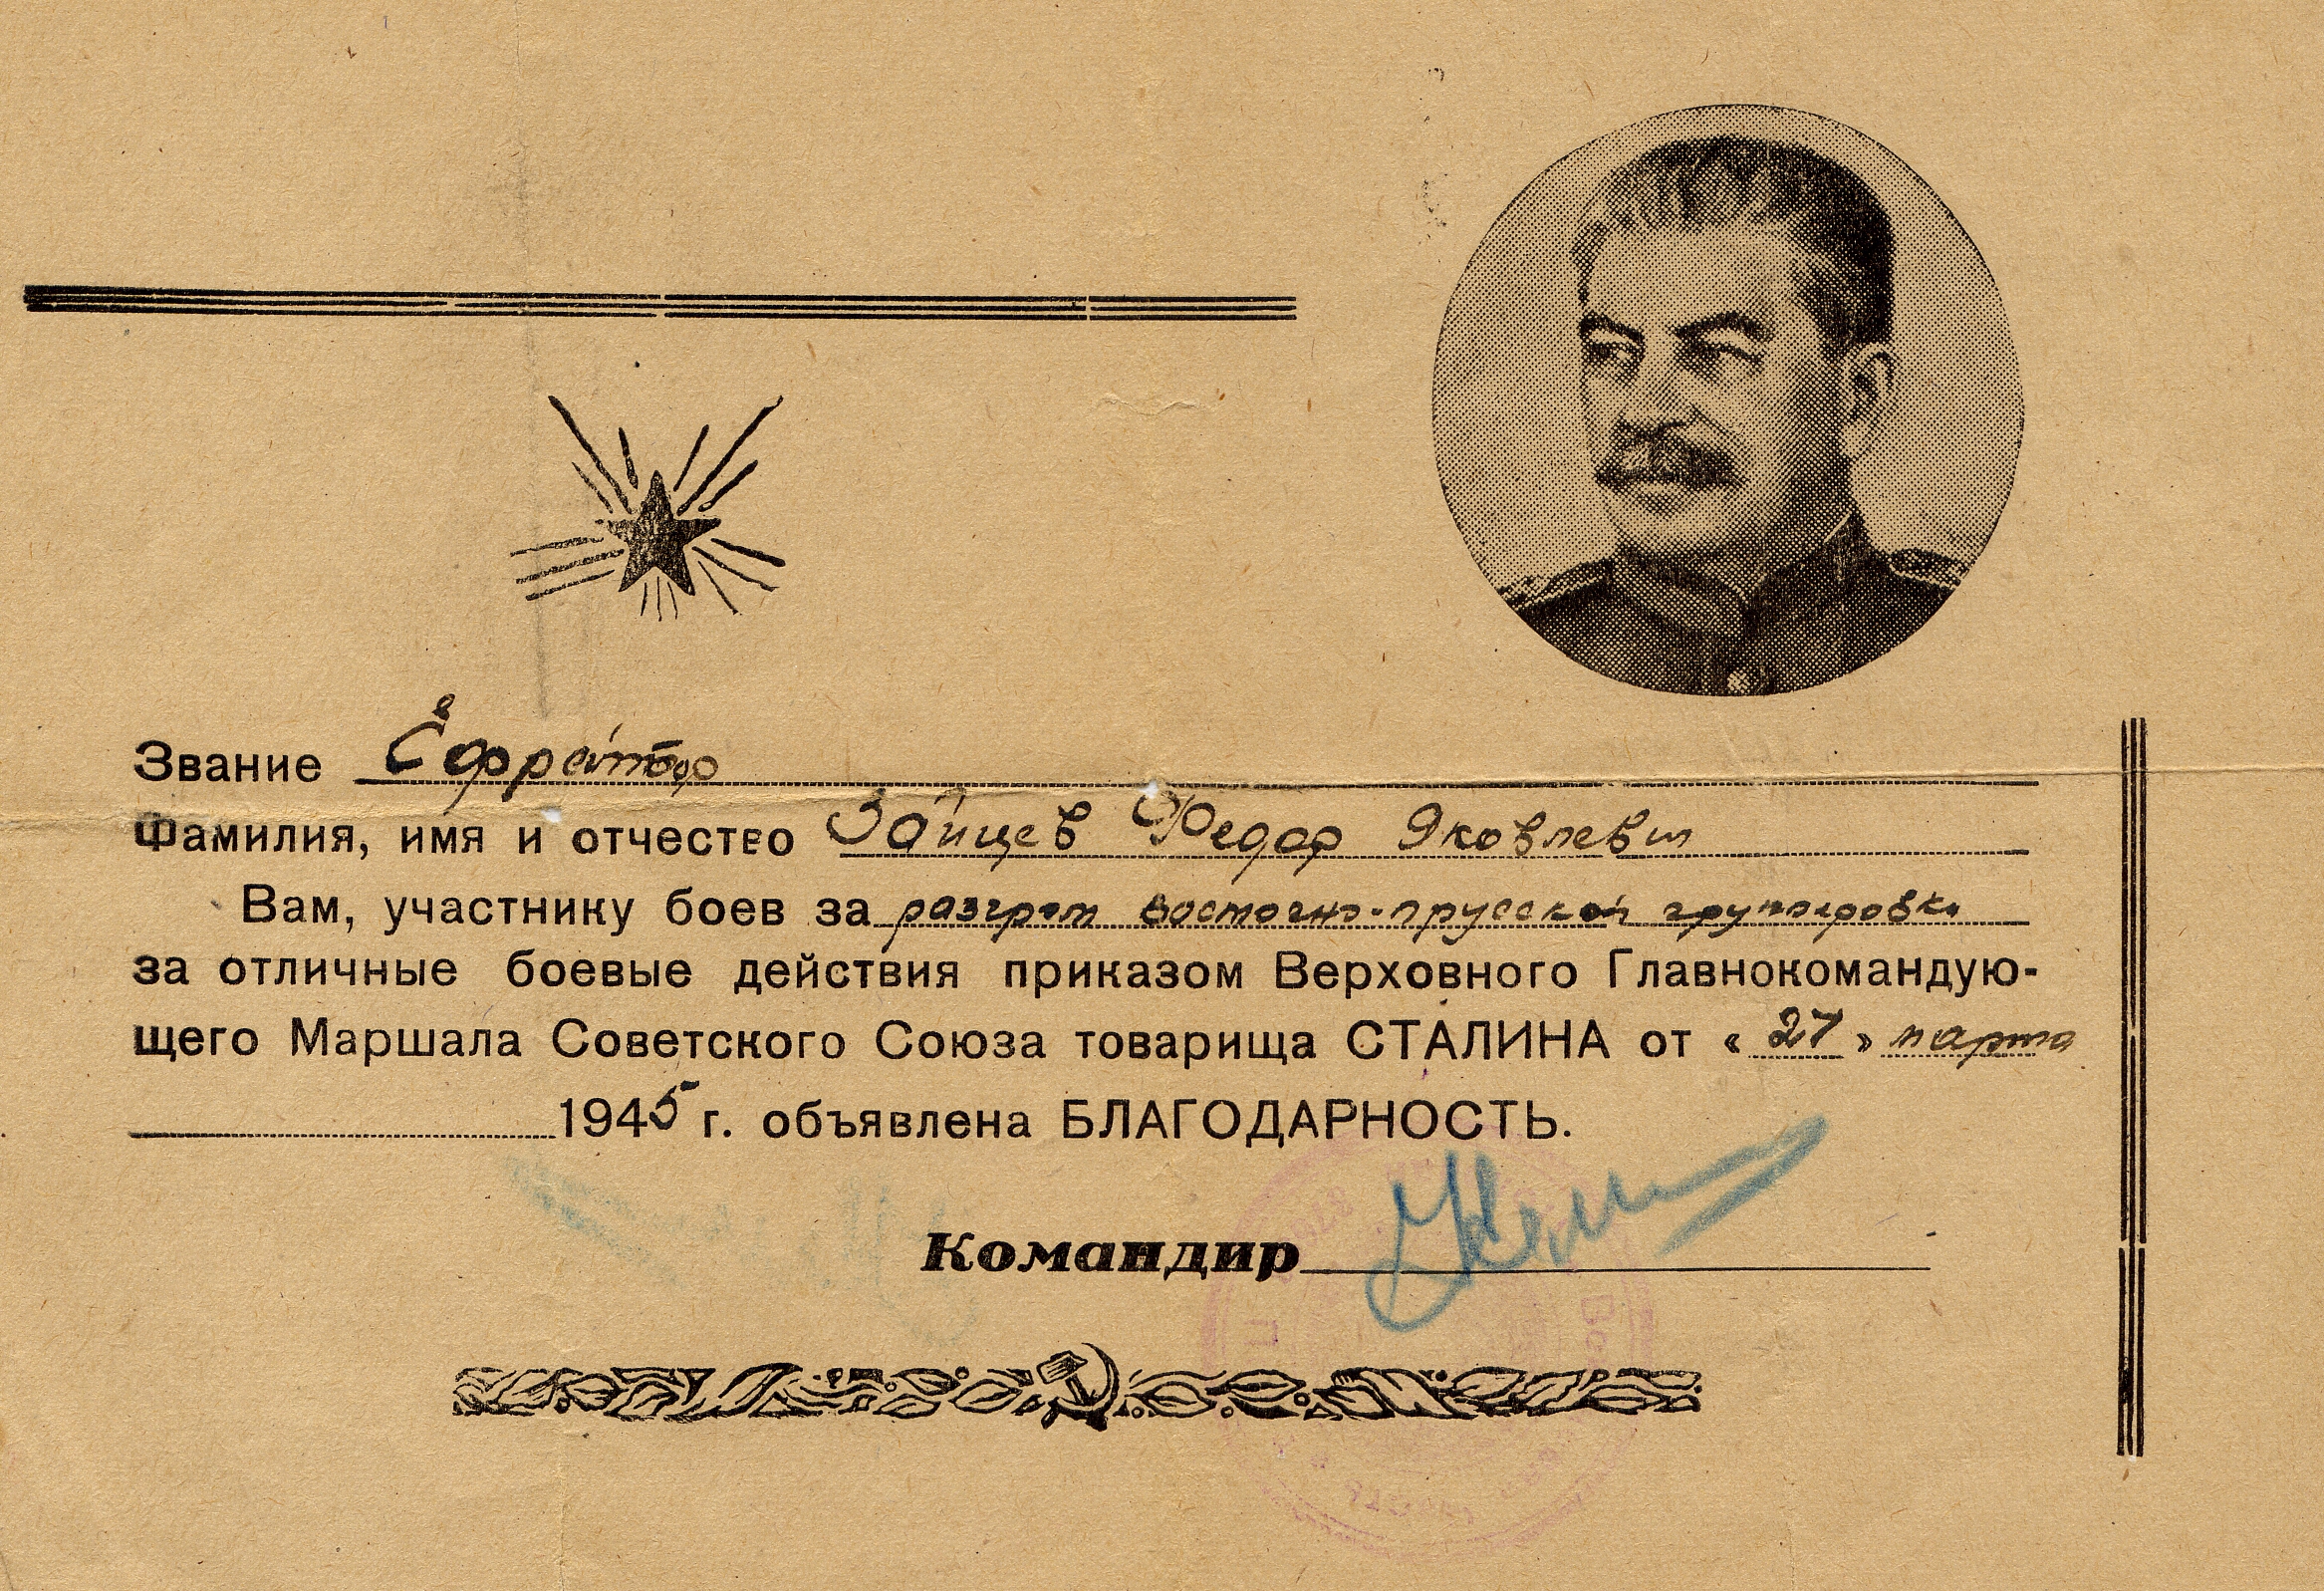 Звание Ефрейтор
Фамилия, имя и отчество Зайцев Федор Яковлевич
Вам, участнику боев за разгром восточно-прусской группировки
за отличные боевые действия приказом Верховного Главнокомандую-
щего Маршала Советского Союза товарища СТАЛИНА от « 27 » марта
1945 г. объявлена БЛАГОДАРНОСТЬ.
Командир